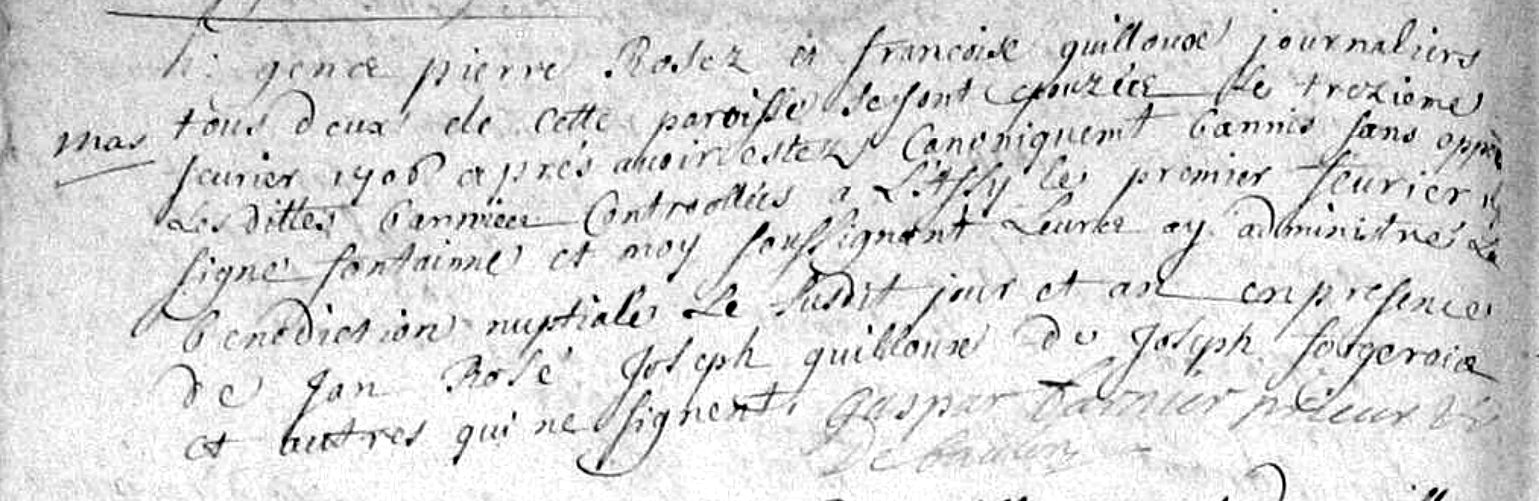 h: gence pierre Rosez et francoise guilloux journaliers
tous deux de cette paroisse se sont epouzéés Le trezieme
mas feurier 1706 apres auoir estez Canoniquemt bannis sans oppõn
Les dittes banniees Controollées a L'Assy le premier feurier
signe fontaine et moy soussignant Leurer ay administré La
benediction nuptiale Le susdit jour et an en presence
de Jan Rosé Joseph guilloux de Joseph fougeraie
et autres qui ne signent Gaspar prieur
De